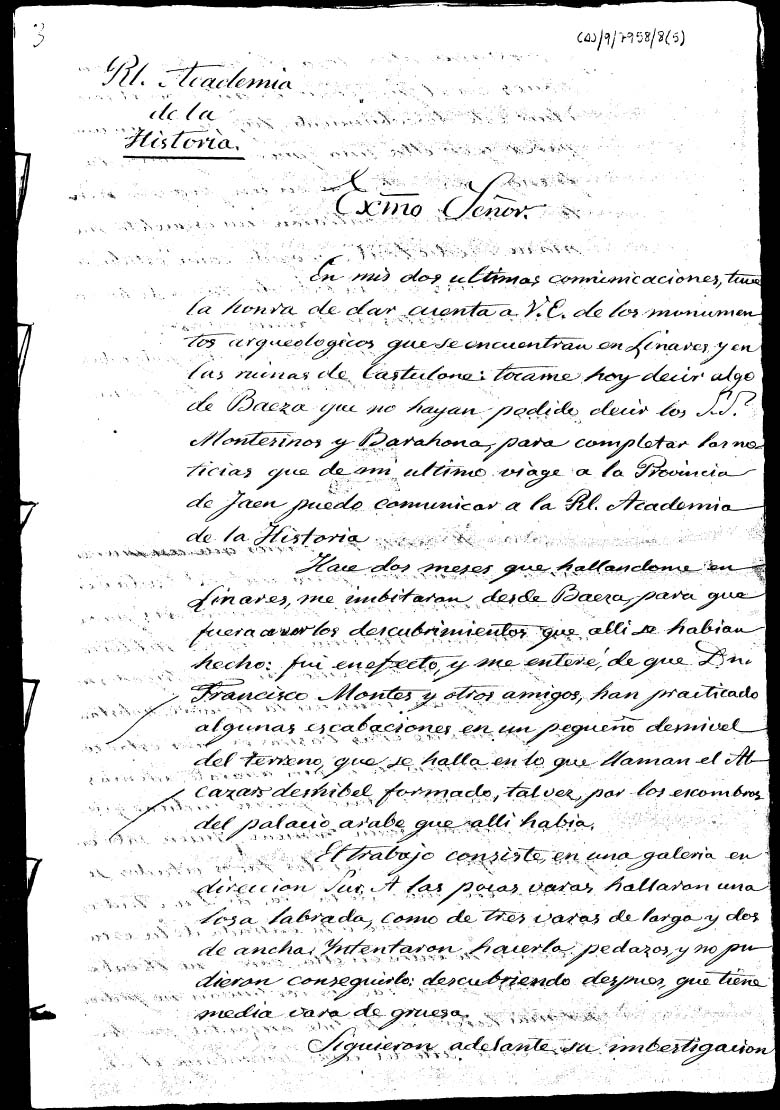 3
CAJ/9/7958/8(5)
Rl. Academia
de la
Historia.
Exmo Señor.
En mis dos ultimas comunicaciones, tuve
la honra de dar cuenta a V.E. de los monumen
tos arqueologicos que se encuentran en Linares, y en
las ruinas de Castulone: tocame hoy decir algo
de Baeza que no hayan podido decir los S.S.
Montesinos y Barahona, para completar las no-
ticias que de mi ultimo viage a la Provincia
de Jaen puedo comunicar a la Rl. Academia
de la Historia
Hace dos meses que hallandome en
Linares, me imbitaron desde Baeza, para que
fuera a ver los descubrimientos que alli se habian
hecho: fui en efecto, y me enteré, de que Dn.
Francisco Montes y otros amigos, han practicado
algunas escabaciones en un pequeño desnivel
del terreno, que se halla en lo que llaman el Al-
cazar: desnibel formado, tal vez, por los escombros
del palacio arabe que alli habia.
El trabajo consiste, en una galeria en
direccion Sur. A las pocas varas, hallaron una
losa labrada, como de tres varas de larga y dos
de ancha. Yntentaron hacerla pedazos, y no pu
dieron conseguirlo: descubriendo despues, que tiene
media vara de gruesa.
Siguieron adelante su imbestigacion